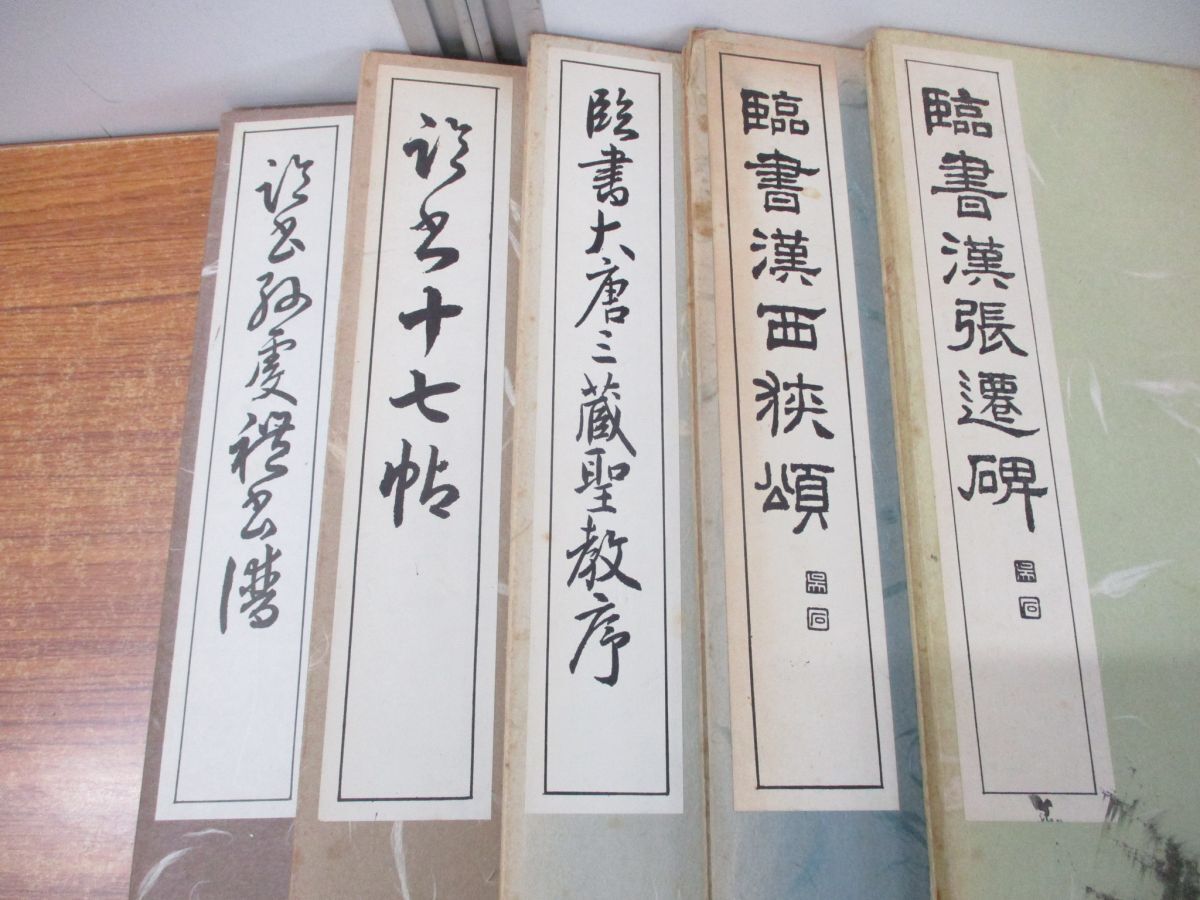 臨書孫虔禮書譜
臨書十七帖
臨書大唐三蔵聖教序
臨書漢西狭頌
臨書漢張遷碑